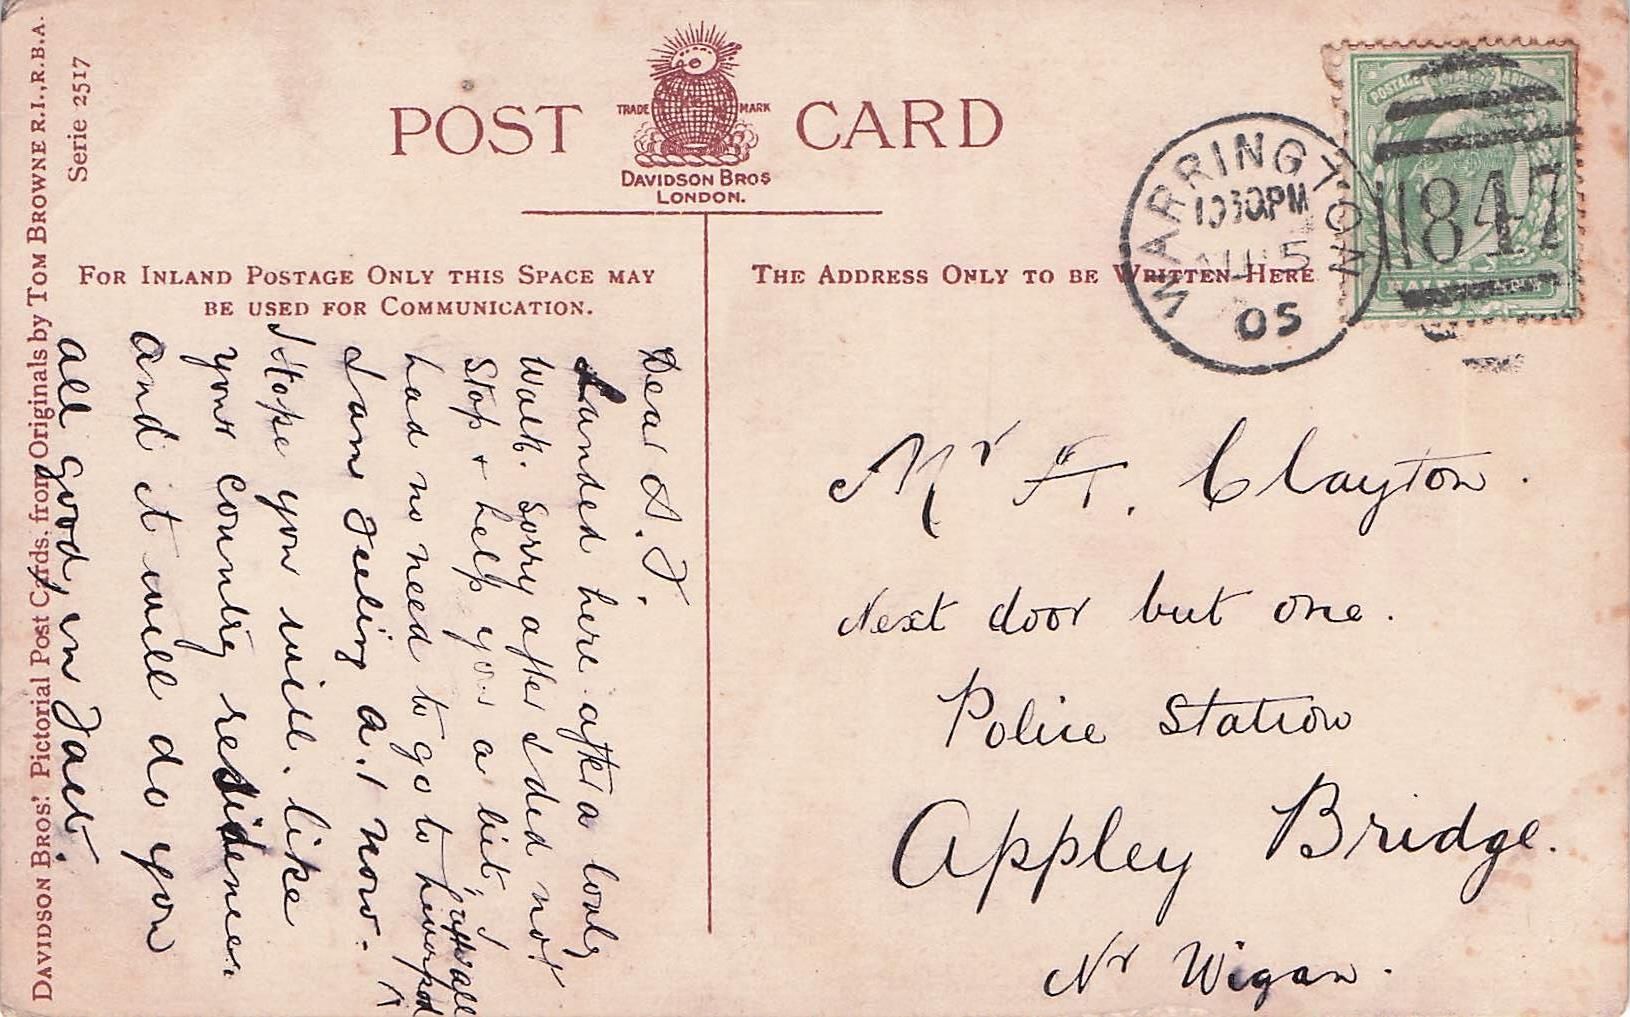 DAVIDSON BROS' Pictorial Post Cards, from Originals by TOM BROWNE R.I., R.B.A.
Serie 2517
POST CARD
TRADE MARK
DAVIDSON BROS
LONDON.
FOR INLAND POSTAGE ONLY THIS SPACE MAY
BE USED FOR COMMUNICATION.
THE ADDRESS ONLY TO BE WRITTEN HERE
WARRINGTON
10 30PM
5
05
847
POSTAGE & REVENUE
Dear A. F.
Landed here after a lonely
Walk. Sorry after I did not
Stop + help you a bit, I
had no need to go to Liverpool
after all
I am Feeling a.1 now.
I Hope you will. like
your country residence.
and it will do you
all good, in Fact.
Mr F. Clayton.
Next door but one.
Police Station
Appley Bridge.
Nr Wigan.